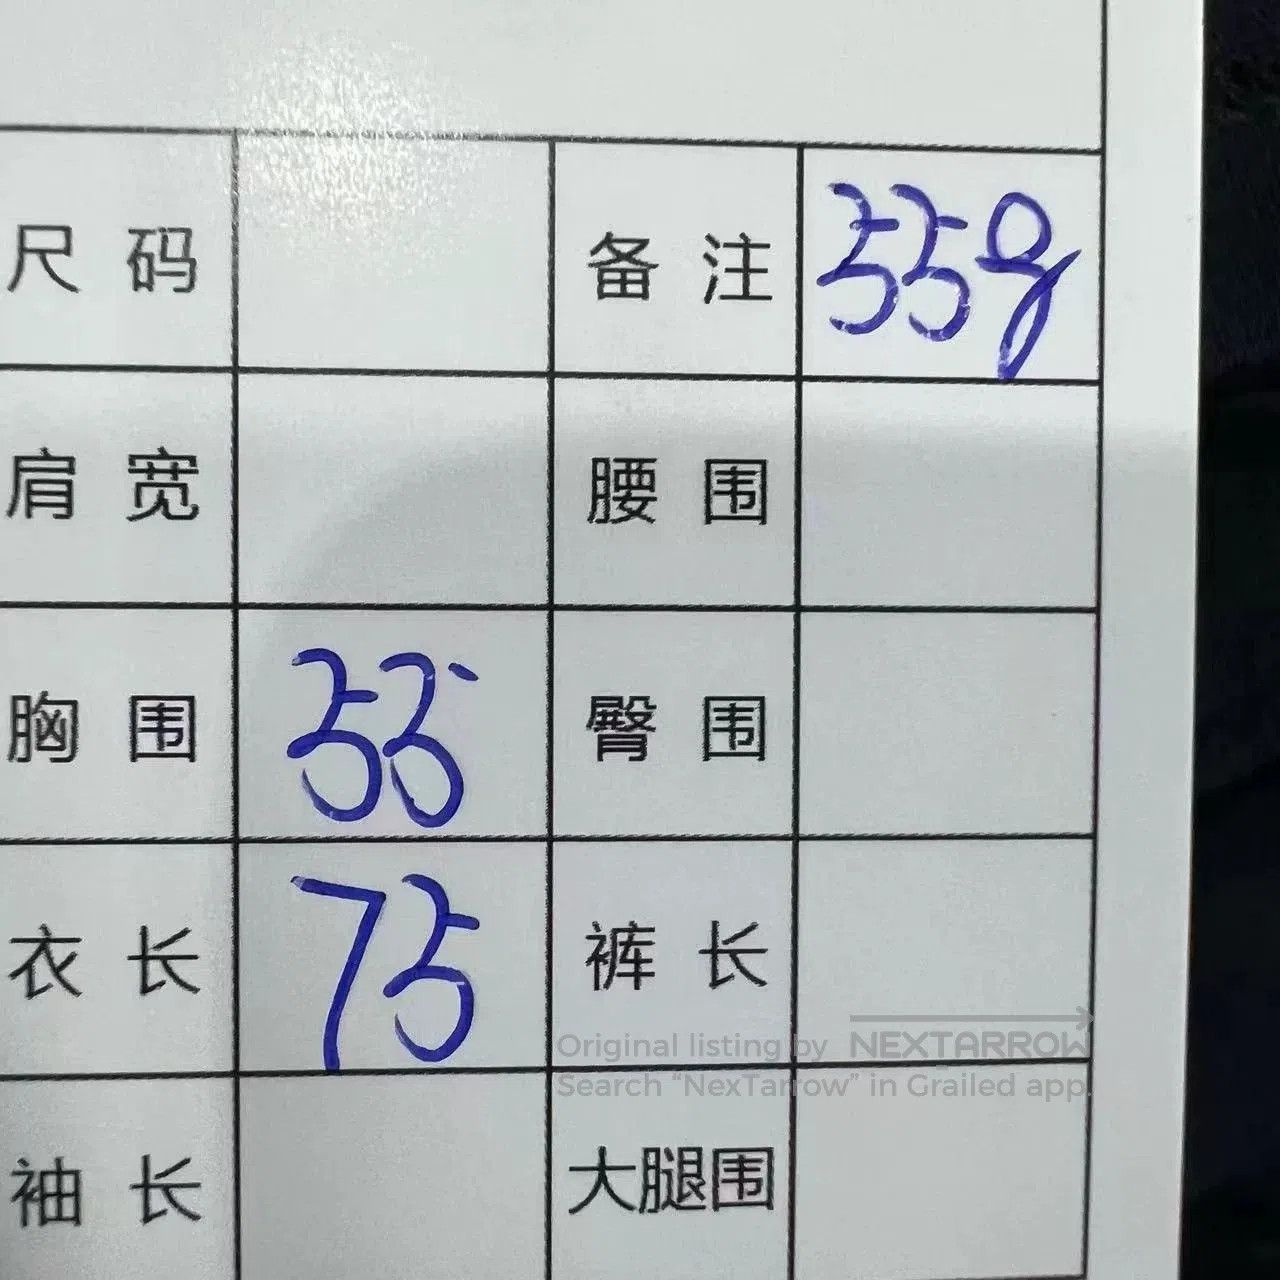 尺 码 备 注 559
肩 宽 腰 围
胸 围 55 臀 围
衣 长 75 裤 长
Original listing by NEXTARROW
Search “NexTarrow” in Grailed app.
袖 长 大腿围